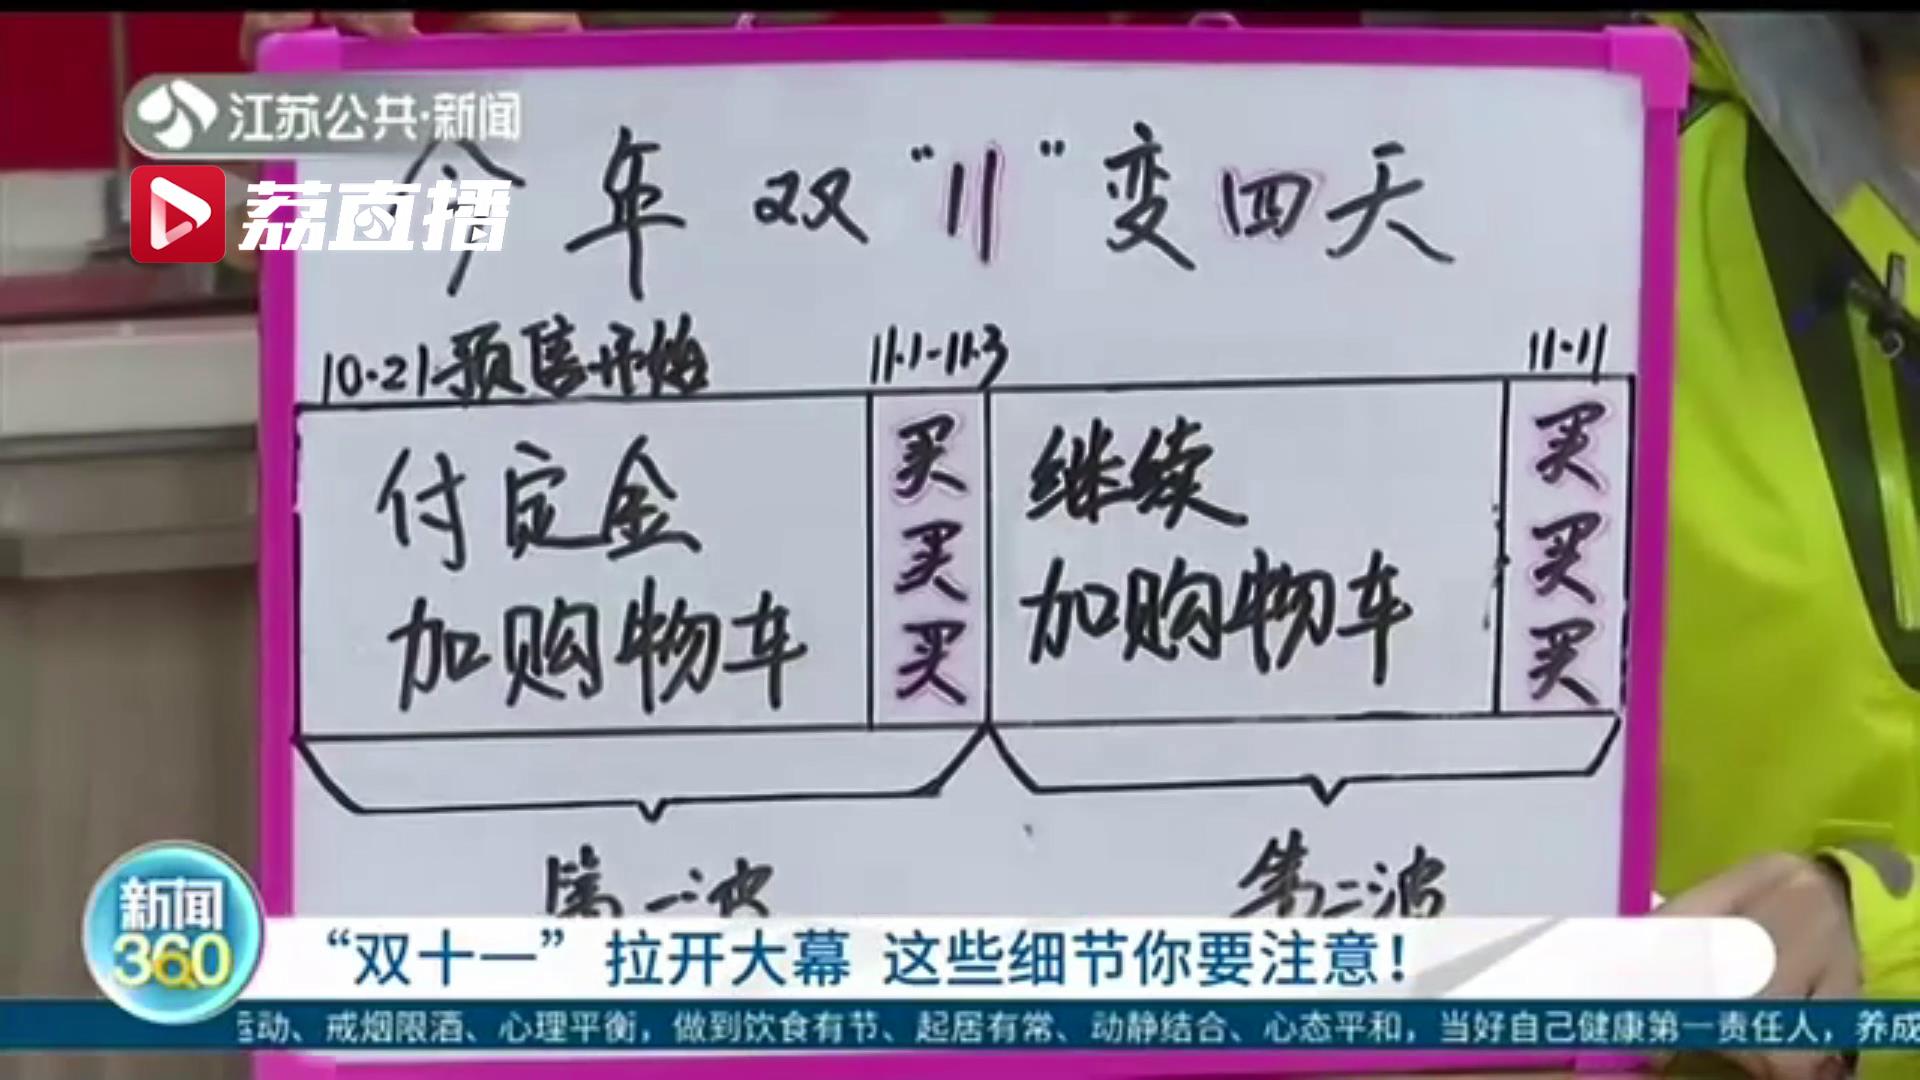 江苏公共·新闻
荔直播
今年双“11”变四天
10·21预售开始
11.1-11.3
11·11
付定金
加购物车
买买买
继续
加购物车
买买买
第一波
第二波
新闻
360
“双十一”拉开大幕 这些细节你要注意！
运动、戒烟限酒、心理平衡，做到饮食有节、起居有常、动静结合、心态平和，当好自己健康第一责任人，养成